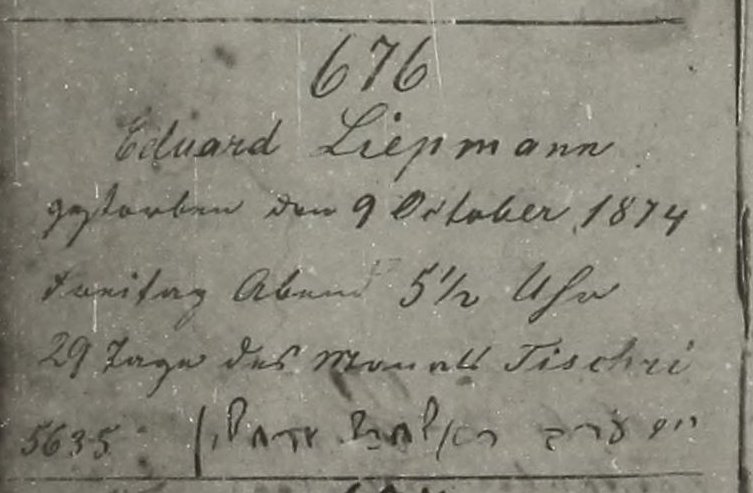 676
Eduard Liepmann
gestorben den 9 October 1874
Freitag Abend 5½ Uhr
29 Tage des Monats Tischri
5635 ערב